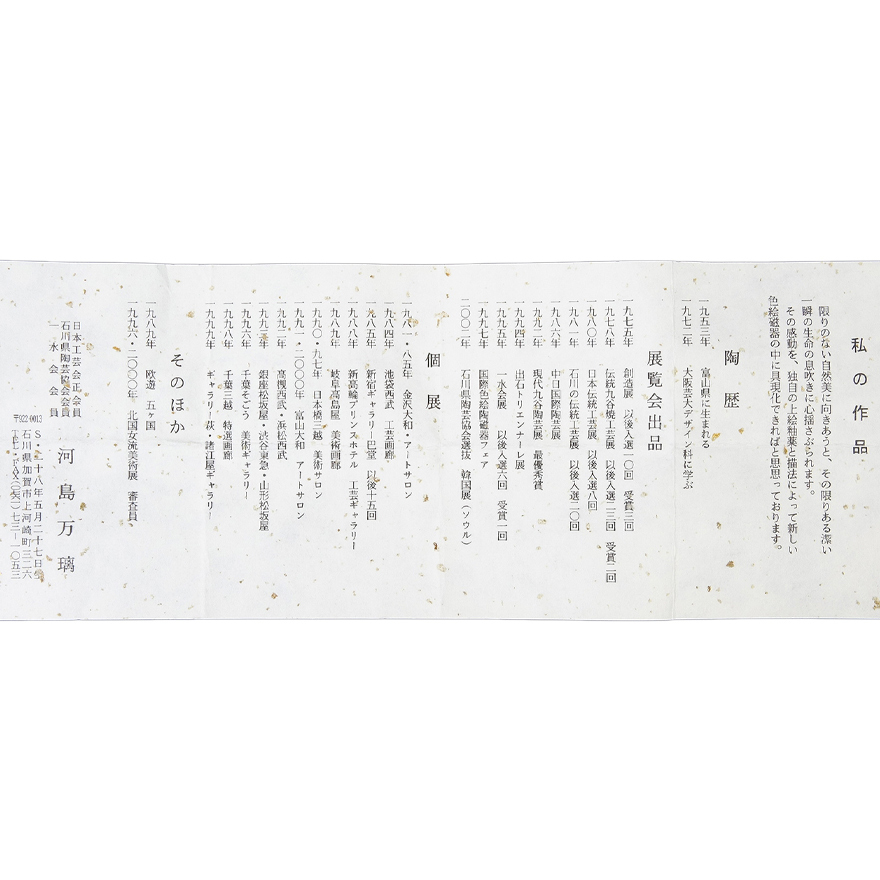 私の作品
限りのない自然美に向きあうと、その限りある潔い
一瞬の生命の息吹きに心揺さぶられます。
その感動を、独自の上絵釉薬と描法によって新しい
色絵磁器の中に具現化できればと思っております。
陶歴
一九五三年 富山県に生まれる
一九七二年 大阪芸大デザイン科に学ぶ
展覧会出品
一九七五年 創造展 以後入選一〇回 受賞三回
一九七八年 伝統九谷焼工芸展 以後入選二三回 受賞二回
一九八〇年 日本伝統工芸展 以後入選八回
一九八一年 石川の伝統工芸展 以後入選二〇回
一九八六年 中日国際陶芸展
一九九二年 現代九谷陶芸展 最優秀賞
一九九四年 出石トリエンナーレ展
一水会展 以後入選六回 受賞一回
一九九七年 国際色絵陶磁器フェア
二〇〇二年 石川県陶芸協会選抜 韓国展(ソウル)
個展
一九八一・八五年 金沢大和・アートサロン
一九八四年 池袋西武 工芸画廊
一九八五年 新宿ギャラリー巴堂 以後十五回
一九八八年 新高輪プリンスホテル 工芸ギャラリー
一九八九年 岐阜高島屋 美術画廊
一九九〇・九七年 日本橋三越 美術サロン
一九九一・二〇〇〇年 富山大和 アートサロン
一九九二年 高槻西武・浜松西武
一九九三年 銀座松坂屋・渋谷東急・山形松坂屋
一九九六年 千葉そごう 美術ギャラリー
一九九八年 千葉三越 特選画廊
一九九九年 ギャラリー萩・諸江屋ギャラリー
そのほか
一九八九年 欧遊 五ヶ国
一九九六・二〇〇〇年 北国女流美術展 審査員
日本工芸会正会員
石川県陶芸協会会員
一水会会員
河島万璃
S・二十八年五月二十七日生
〒922-0013 石川県加賀市上河崎町三二六